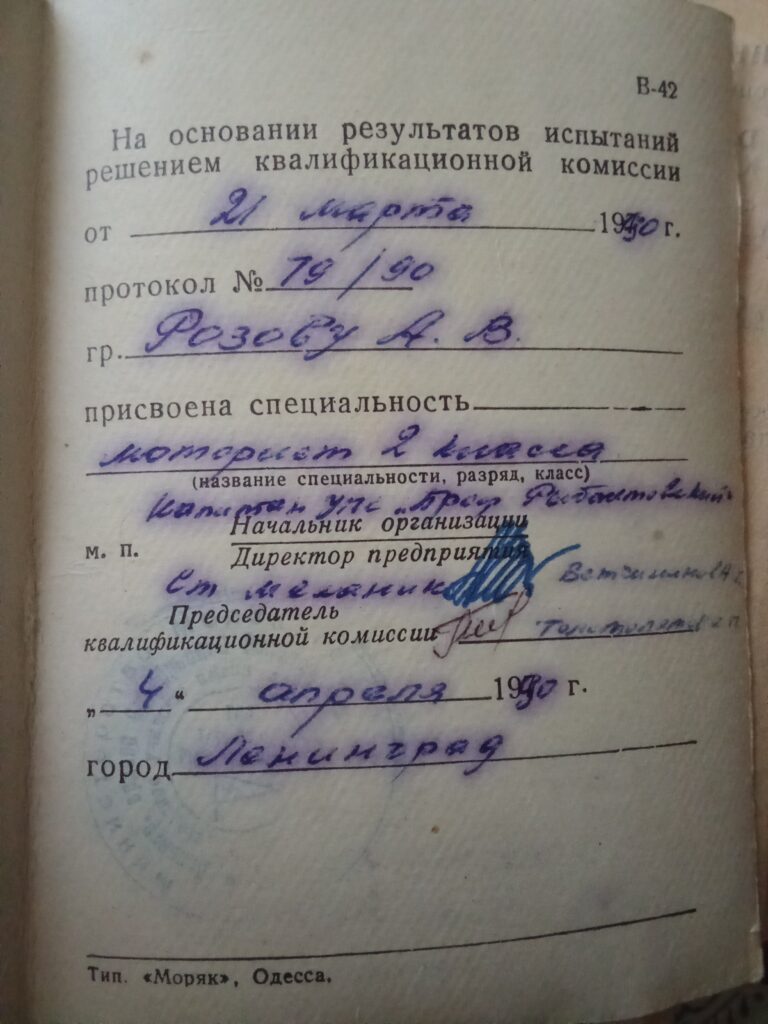 В-42
На основании результатов испытаний
решением квалификационной комиссии
от 21 марта 1990 г.
протокол № 79/90
гр. Розову А. В.
присвоена специальность
моторист 2 класса
(название специальности, разряд, класс)
Капитан УПС „Проф. Рыбалтовский"
Начальник организации
м. п.
Директор предприятия
Ст механик
Председатель
квалификационной комиссии
„4" апреля 1990 г.
город Ленинград
Тип. «Моряк», Одесса.